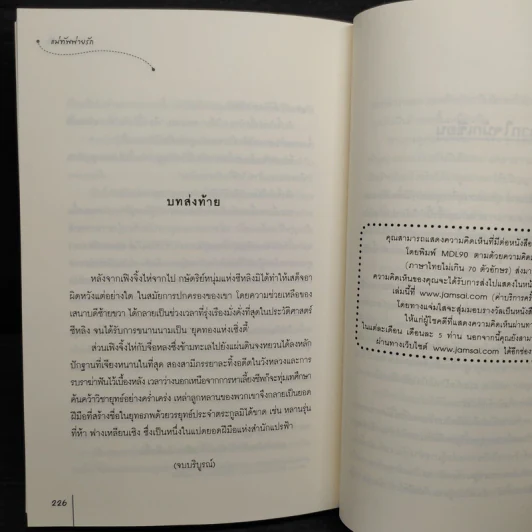 แม่ทัพพ่ายรัก
บทส่งท้าย
หลังจากเฟิงจิ้งไห่จากไป กษัตริย์หนุ่มแห่งซีหลิงมิได้ทำให้เสด็จอา
ผิดหวังแต่อย่างใด ในสมัยการปกครองของเขา โดยความช่วยเหลือของ
เสนาบดีซ้ายขวา ได้กลายเป็นช่วงเวลาที่รุ่งเรืองมั่งคั่งที่สุดในประวัติศาสตร์
ซีหลิง จนได้รับการขนานนามเป็น ยุคทองแห่งเชิงตี้
ส่วนเฟิงจิ้งไห่กับจื่อหลงซึ่งข้ามทะเลไปยังแผ่นดินจงหยวนได้ลงหลัก
ปักฐานที่เจียงหนานในที่สุด สองสามีภรรยาละทิ้งอดีตในวังหลวงและการ
รบราฆ่าฟันไว้เบื้องหลัง เวลาว่างนอกเหนือจากการหาเลี้ยงชีพก็จะทุ่มเทศึกษา
ค้นคว้าวิชายุทธ์อย่างคร่ำเคร่ง เหล่าลูกหลานของพวกเขาจึงกลายเป็นยอด
ฝีมือที่สร้างชื่อในยุทธภพด้วยวรยุทธ์ประจำตระกูลมิได้ขาด เช่น หลานรุ่น
ที่ห้า ฟางเหลียนเชิง ซึ่งเป็นหนึ่งในแปดยอดฝีมือแห่งสำนักแปรฟ้า
(จบบริบูรณ์)
226
คุณสามารถแสดงความคิดเห็นที่มีต่อหนังสือ
โดยพิมพ์ MDL90 ตามด้วยความคิด
(ภาษาไทยไม่เกิน 70 ตัวอักษร) ส่งมา
ความคิดเห็นของคุณจะได้รับการส่งไปแสดงในหน้
เล่มนี้ที่ www.jamsai.com (ค่าบริการครั้
โดยทางแจ่มใสจะสุ่มมอบรางวัลเป็นหนังสือ
ให้แก่ผู้โชคดีที่แสดงความคิดเห็นผ่านทา
ในแต่ละเดือน เดือนละ 5 ท่าน นอกจากนี้คุณยังสามา
ผ่านทางเว็บไซต์ www.jamsai.com ได้อีกช่อง